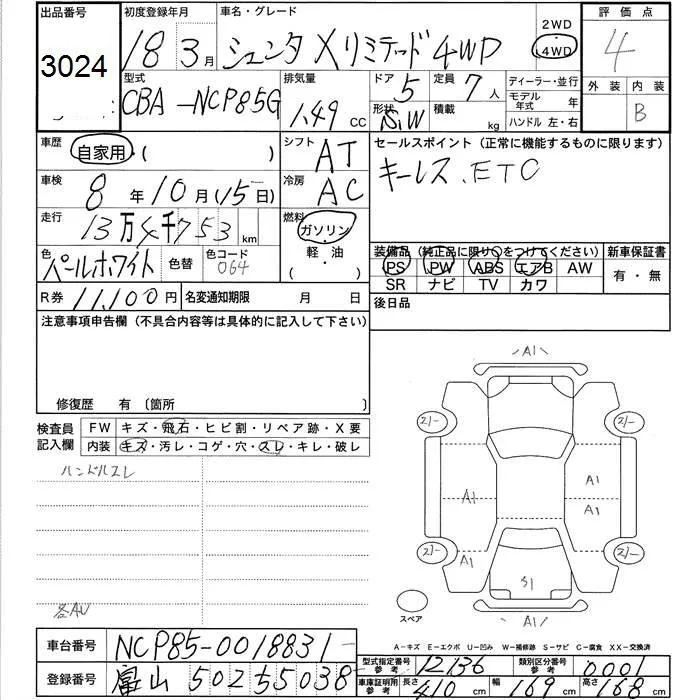 出品番号
3024
初度登録年月
18 3月
車名・グレード
シエンタ Xリミテッド 4WD
2WD
4WD
評価点
4
外装 内装
B
型式
CBA-NCP85G
排気量
1.49 CC
ドア
5
定員
7人
形状
S/W
積載
kg
ディーラー・並行
モデル年式 年
ハンドル 左・右
車歴
自家用・( )
シフト
AT
セールスポイント(正常に機能するものに限ります)
キーレス.ETC
車検
8年10月(15日)
冷房
AC
走行
13万4千753km
燃料
ガソリン・
軽・油
( ・ )
色
パールホワイト
色替
色コード
064
装備品(純正品に限り○をつけてください)
PS PW ABS エアB AW
SR ナビ TV カワ
新車保証書
有・無
R券 11,100円
名変通知期限 月 日
後日品
注意事項申告欄(不具合内容等は具体的に記入して下さい)
修復歴 有〔箇所 〕
検査員記入欄
FW キズ・飛石・ヒビ割・リペア跡・X要
内装 キズ・汚レ・コゲ・穴・スレ・キレ・破レ
ハンドルスレ
各AU
A1
21-
21-
A1
A1
A1
21-
21-
A1
S1
A1
スペア
A-キズ E-エクボ U-凹み W-補修跡 S-サビ C-腐食 XX-交換済
車台番号
NCP85-0018831
登録番号
富山 502 5 5038
型式指定番号 参考
12136
類別区分番号 参考
0001
車庫証明用 参考
長さ 410 cm
幅 169 cm
高さ 168 cm